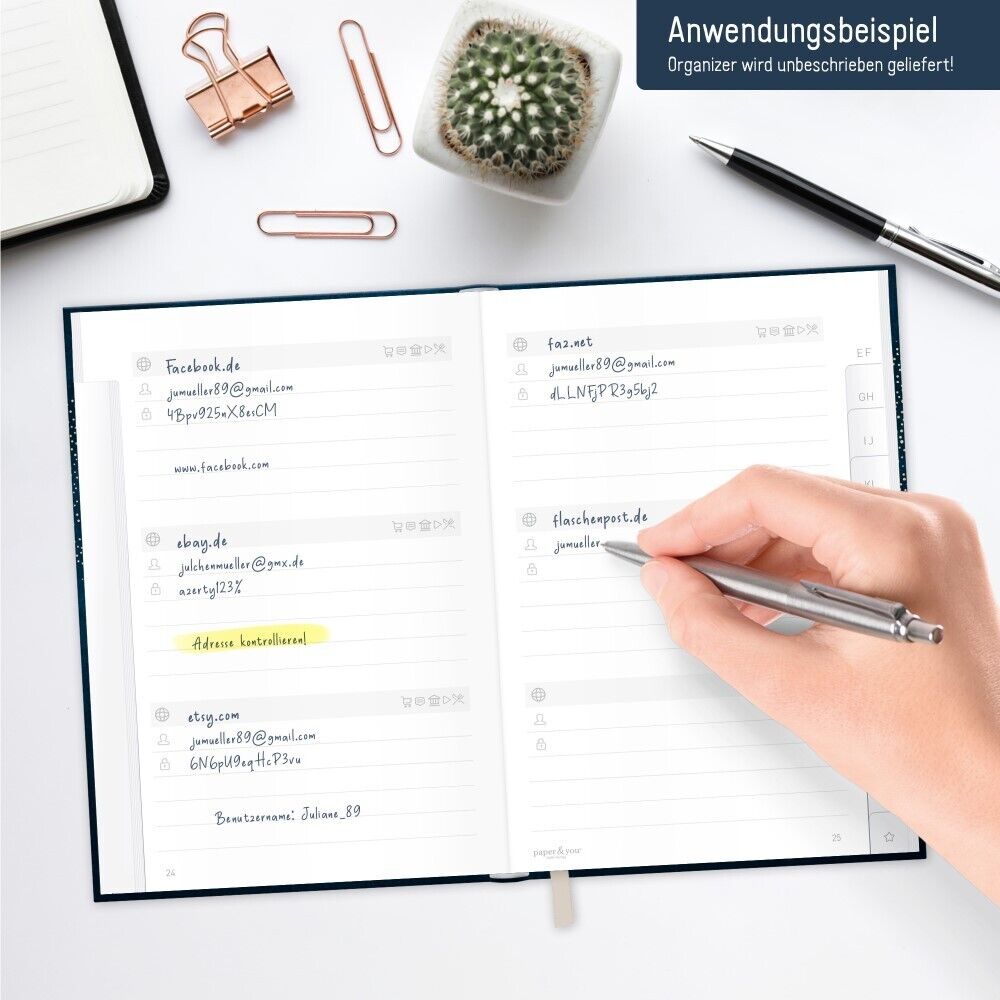 Anwendungsbeispiel
Organizer wird unbeschrieben geliefert!
Facebook.de
jumueller89@gmail.com
4Bpv925nX8esCM
www.facebook.com
ebay.de
julchenmueller@gmx.de
azerty123%
Adresse kontrollieren!
etsy.com
jumueller89@gmail.com
6N6pU9eqHcP3vu
Benutzername: Juliane_89
24
faz.net
jumueller89@gmail.com
dLLNFjPR3g5bj2
flaschenpost.de
jumueller
paper&you
25
EF
GH
IJ
KL